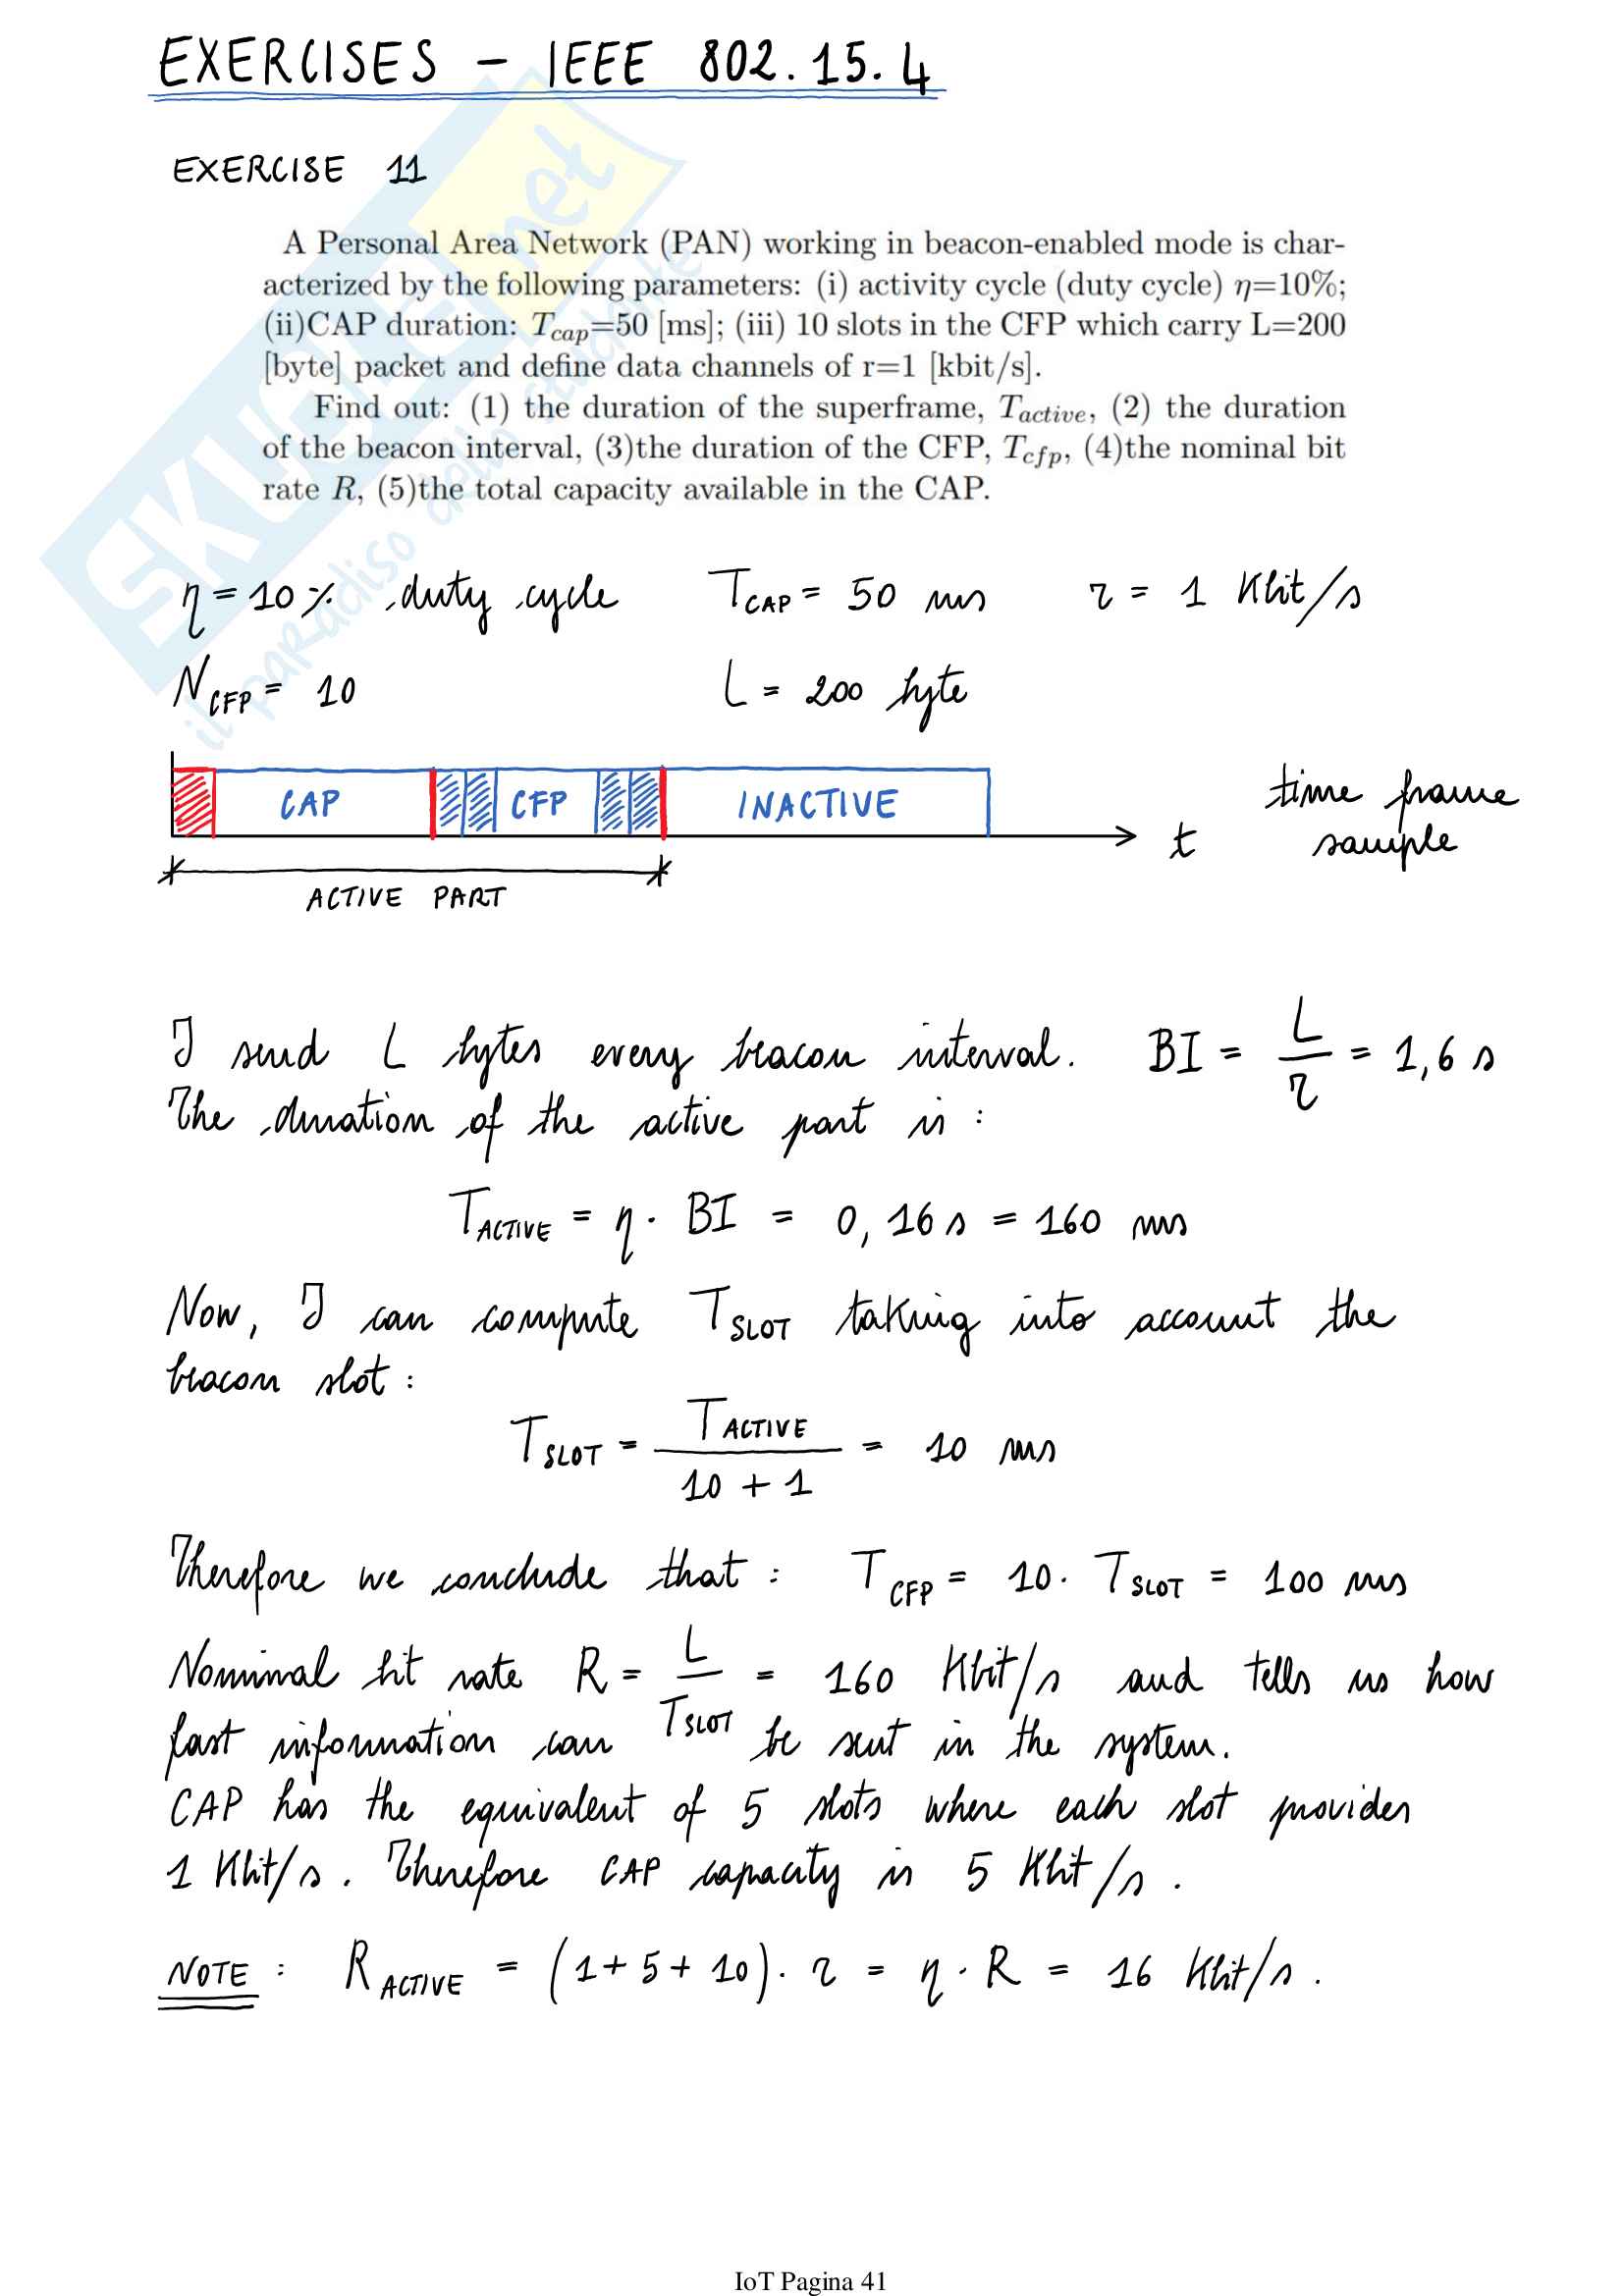 EXERCISES - IEEE 802.15.4
EXERCISE 11
A Personal Area Network (PAN) working in beacon-enabled mode is char-
acterized by the following parameters: (i) activity cycle (duty cycle) η=10%;
(ii)CAP duration: Tcap=50 [ms]; (iii) 10 slots in the CFP which carry L=200
[byte] packet and define data channels of r=1 [kbit/s].
Find out: (1) the duration of the superframe, Tactive, (2) the duration
of the beacon interval, (3)the duration of the CFP, Tcfp, (4)the nominal bit
rate R, (5)the total capacity available in the CAP.
SKUOLA.net
il paradiso dello studente
η = 10 % duty cycle T_CAP = 50 ms r = 1 Kbit/s
N_CFP = 10 L = 200 byte
CAP CFP INACTIVE
t
time frame
sample
ACTIVE PART
I send L bytes every beacon interval. BI = L/r = 1,6 s
The duration of the active part is :
T_ACTIVE = η · BI = 0,16 s = 160 ms
Now, I can compute T_SLOT taking into account the
beacon slot :
T_SLOT = T_ACTIVE / (10 + 1) = 10 ms
Therefore we conclude that : T_CFP = 10 · T_SLOT = 100 ms
Nominal bit rate R = L/T_SLOT = 160 Kbit/s and tells us how
fast information can be sent in the system.
CAP has the equivalent of 5 slots where each slot provides
1 Kbit/s. Therefore CAP capacity is 5 Kbit/s.
NOTE : R_ACTIVE = (1 + 5 + 10) · r = η · R = 16 Kbit/s.
IoT Pagina 41